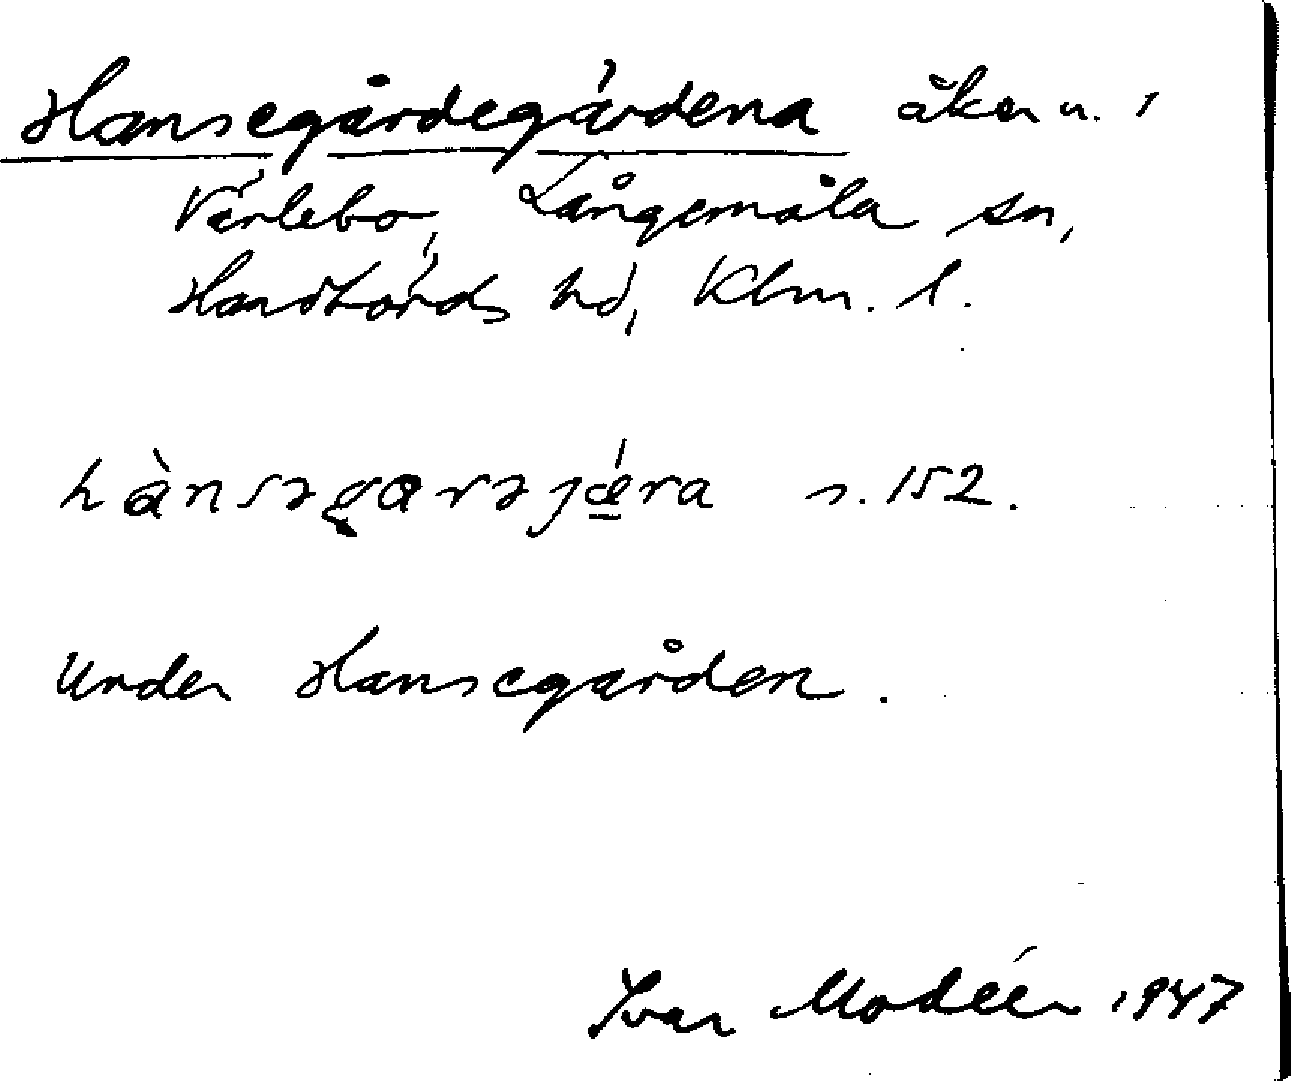 Hansegårdegärdena åker u. i
Värlebo, Långemåla sn,
Handbörds hd, Klm. l.
hànsəgarəjǽra s. 152.
Under Hansegården.
Ivar Modéer 1947